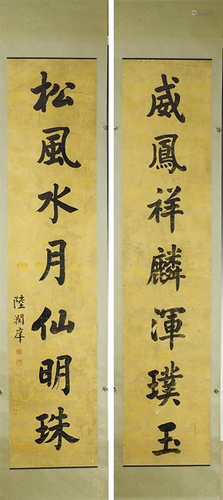 威鳳祥麟渾璞玉
松風水月仙明珠
陸潤庠